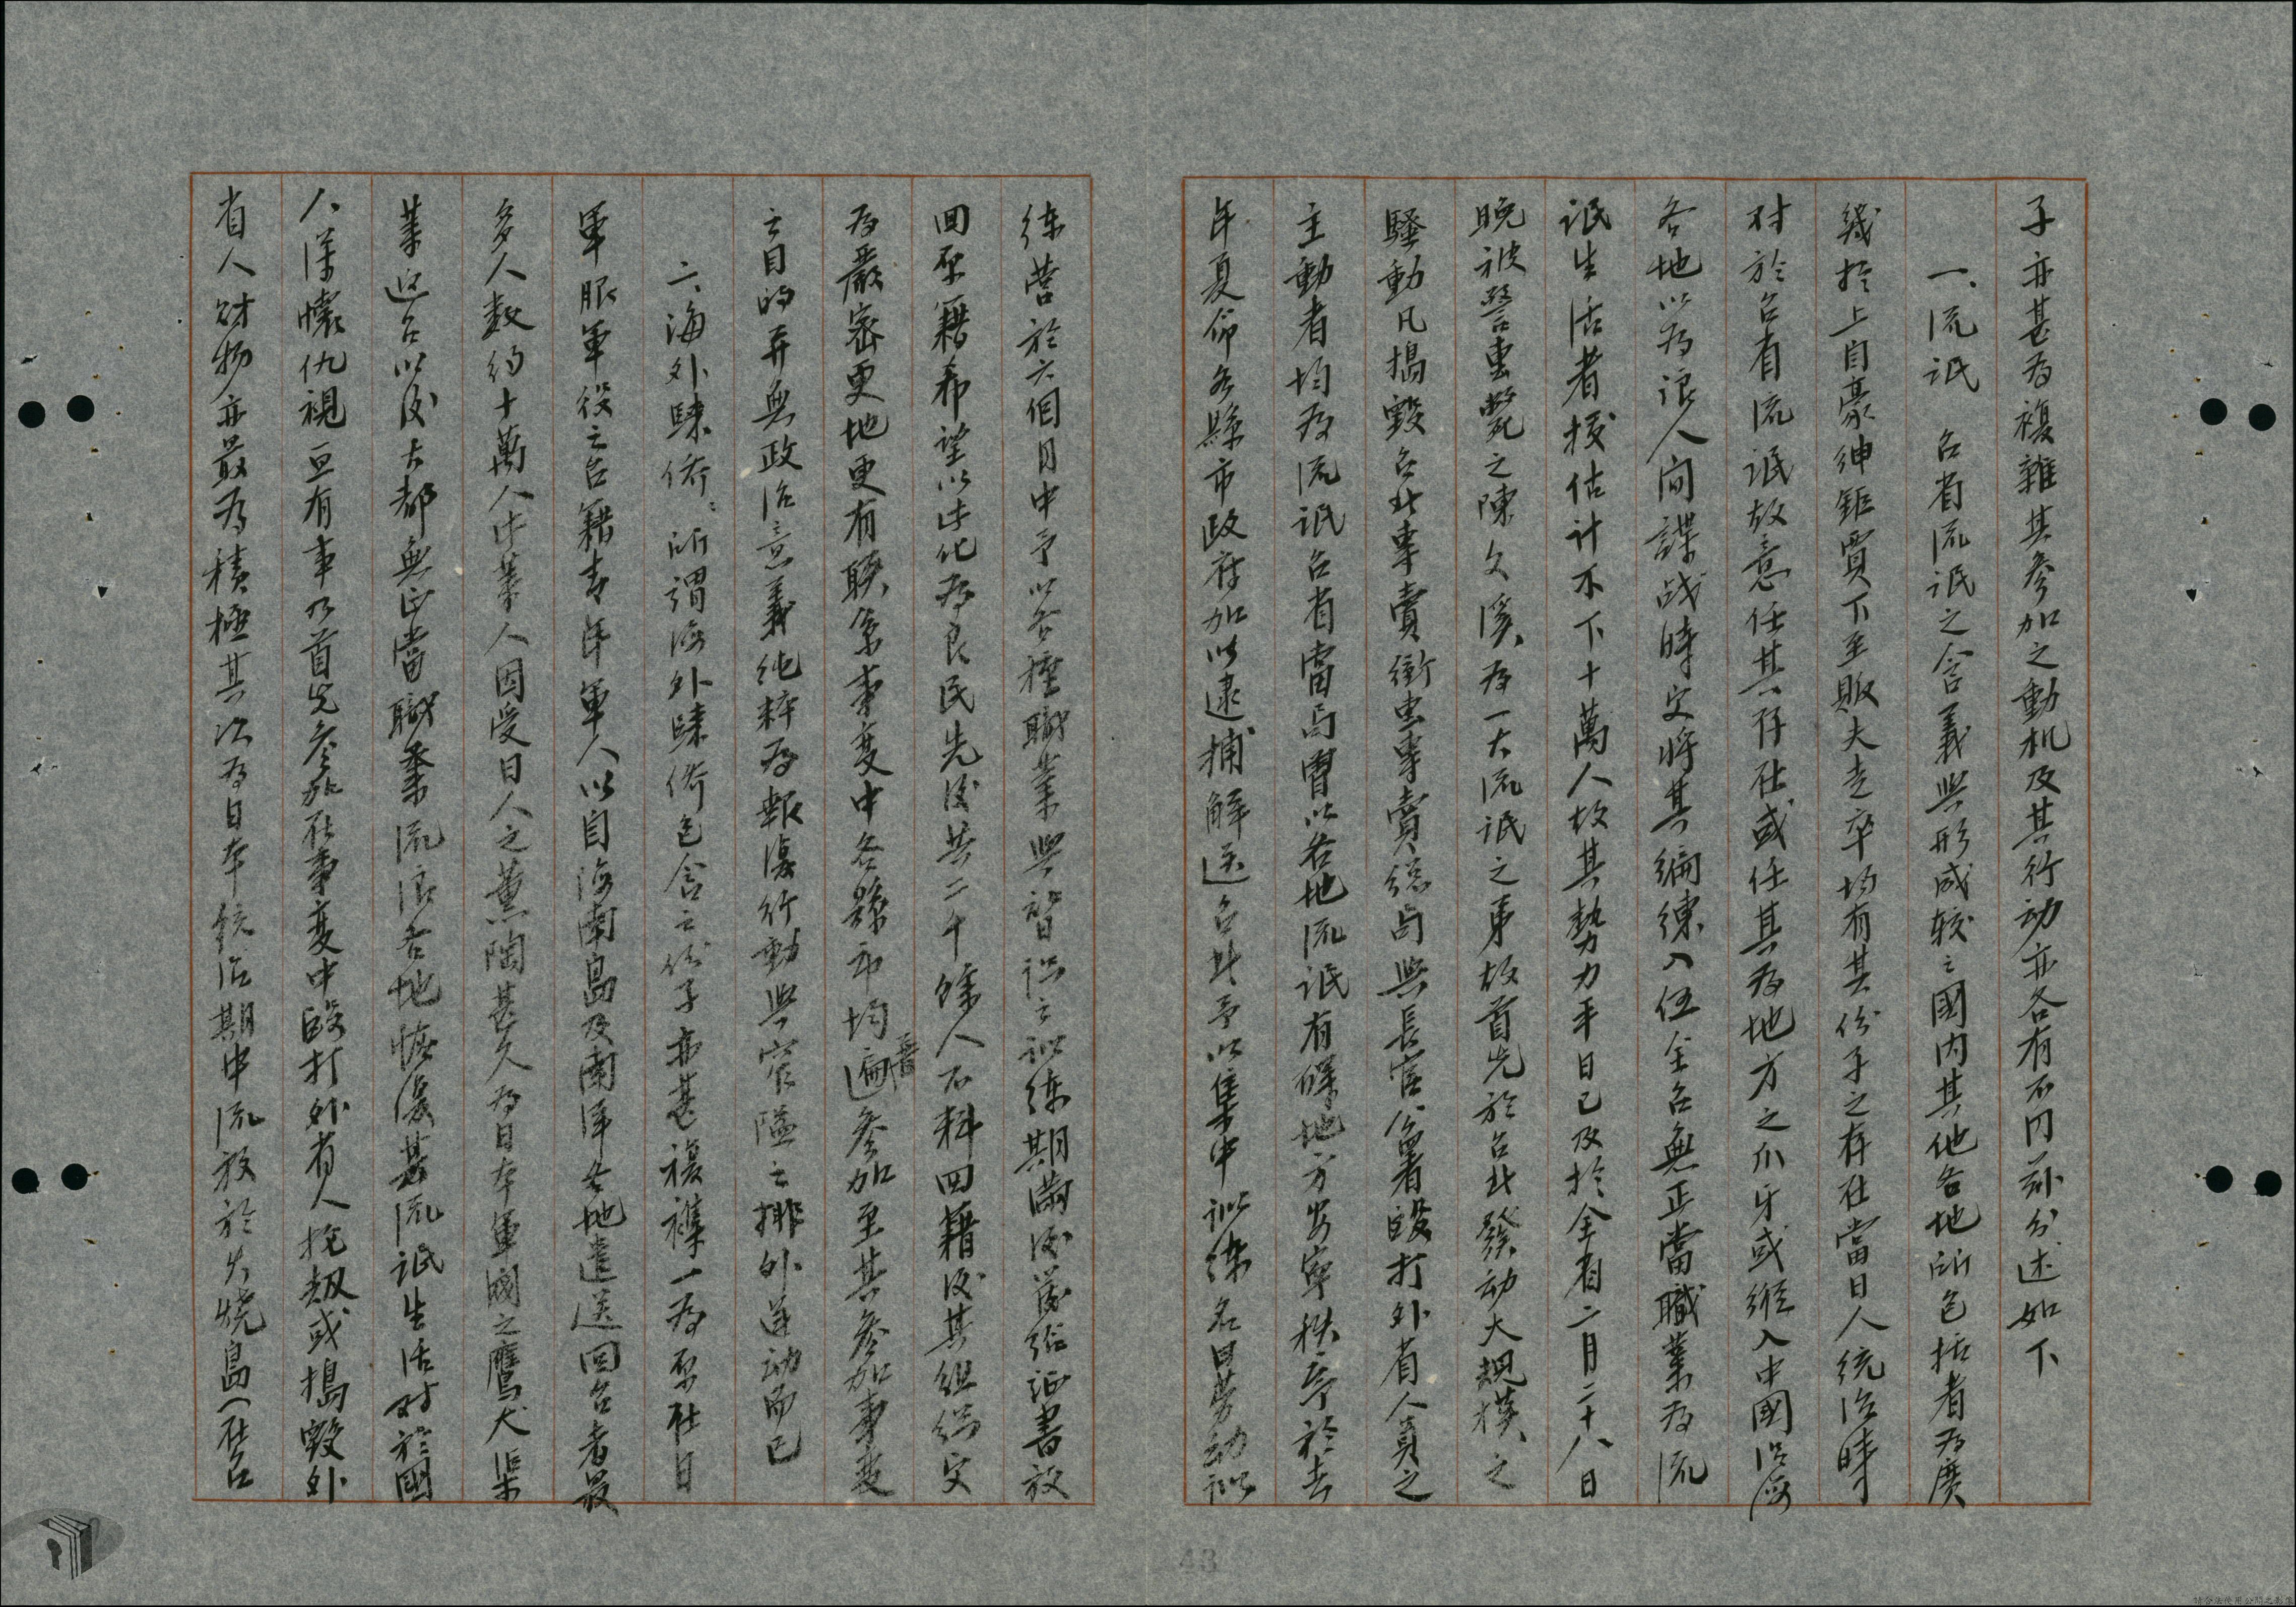 子亦甚為複雜其參加之動机及其行动亦各有不同茲分述如下
一、流氓 台省流氓之含義與形成較之國内其他各地所包括者為廣
幾於上自豪紳鉅賈下至販夫走卒均有其份子之存在當日人統治時
对於台省流氓故意任其存在或任其為地方之爪牙或縱入中國沿海
各地以為浪人间諜战時又將其編練入伍全台無正當職業為流
氓生活者援估计不下十萬人故其勢力平日已及於全省二月二十八日
晚被警击斃之陳文溪為一大流氓之弟故首先於台北發动大規模之
騷動凡搗毀台北專賣衛虫專賣總局與長官公署毆打外省人員之
主動者均為流氓台省當局曾以各地流氓有碍地方安寧秩序於去
年夏命各縣市政府加以逮捕解送台北予以集中训练名曰劳动训
练营於六個月中予以各種職業與智识之训练期滿後發给证書放
回原籍希望以此化為良民先後共二千餘人不料回籍後其组织又
為嚴密更地更有联系事变中各縣市均普遍參加至其參加事变
之目的并無政治意義纯粹為報復行動與窄隘之排外运动而已
二、海外歸侨：所謂海外歸侨包含之份子亦甚複襍一為原在日
軍服軍役之台籍青年軍人以自海南島及南洋各地遣送回台者最
多人数约十萬人此輩人因受日人之薰陶甚久為日本軍國之鷹犬渠
輩返台以後大都無正當職業流浪各地恢復其流氓生活对於國
人深懷仇視一旦有事乃首先參加在事变中毆打外省人抢劫或搗毀外
省人财物亦最為積極其次為日本統治期中流放於火燒島（在台
43